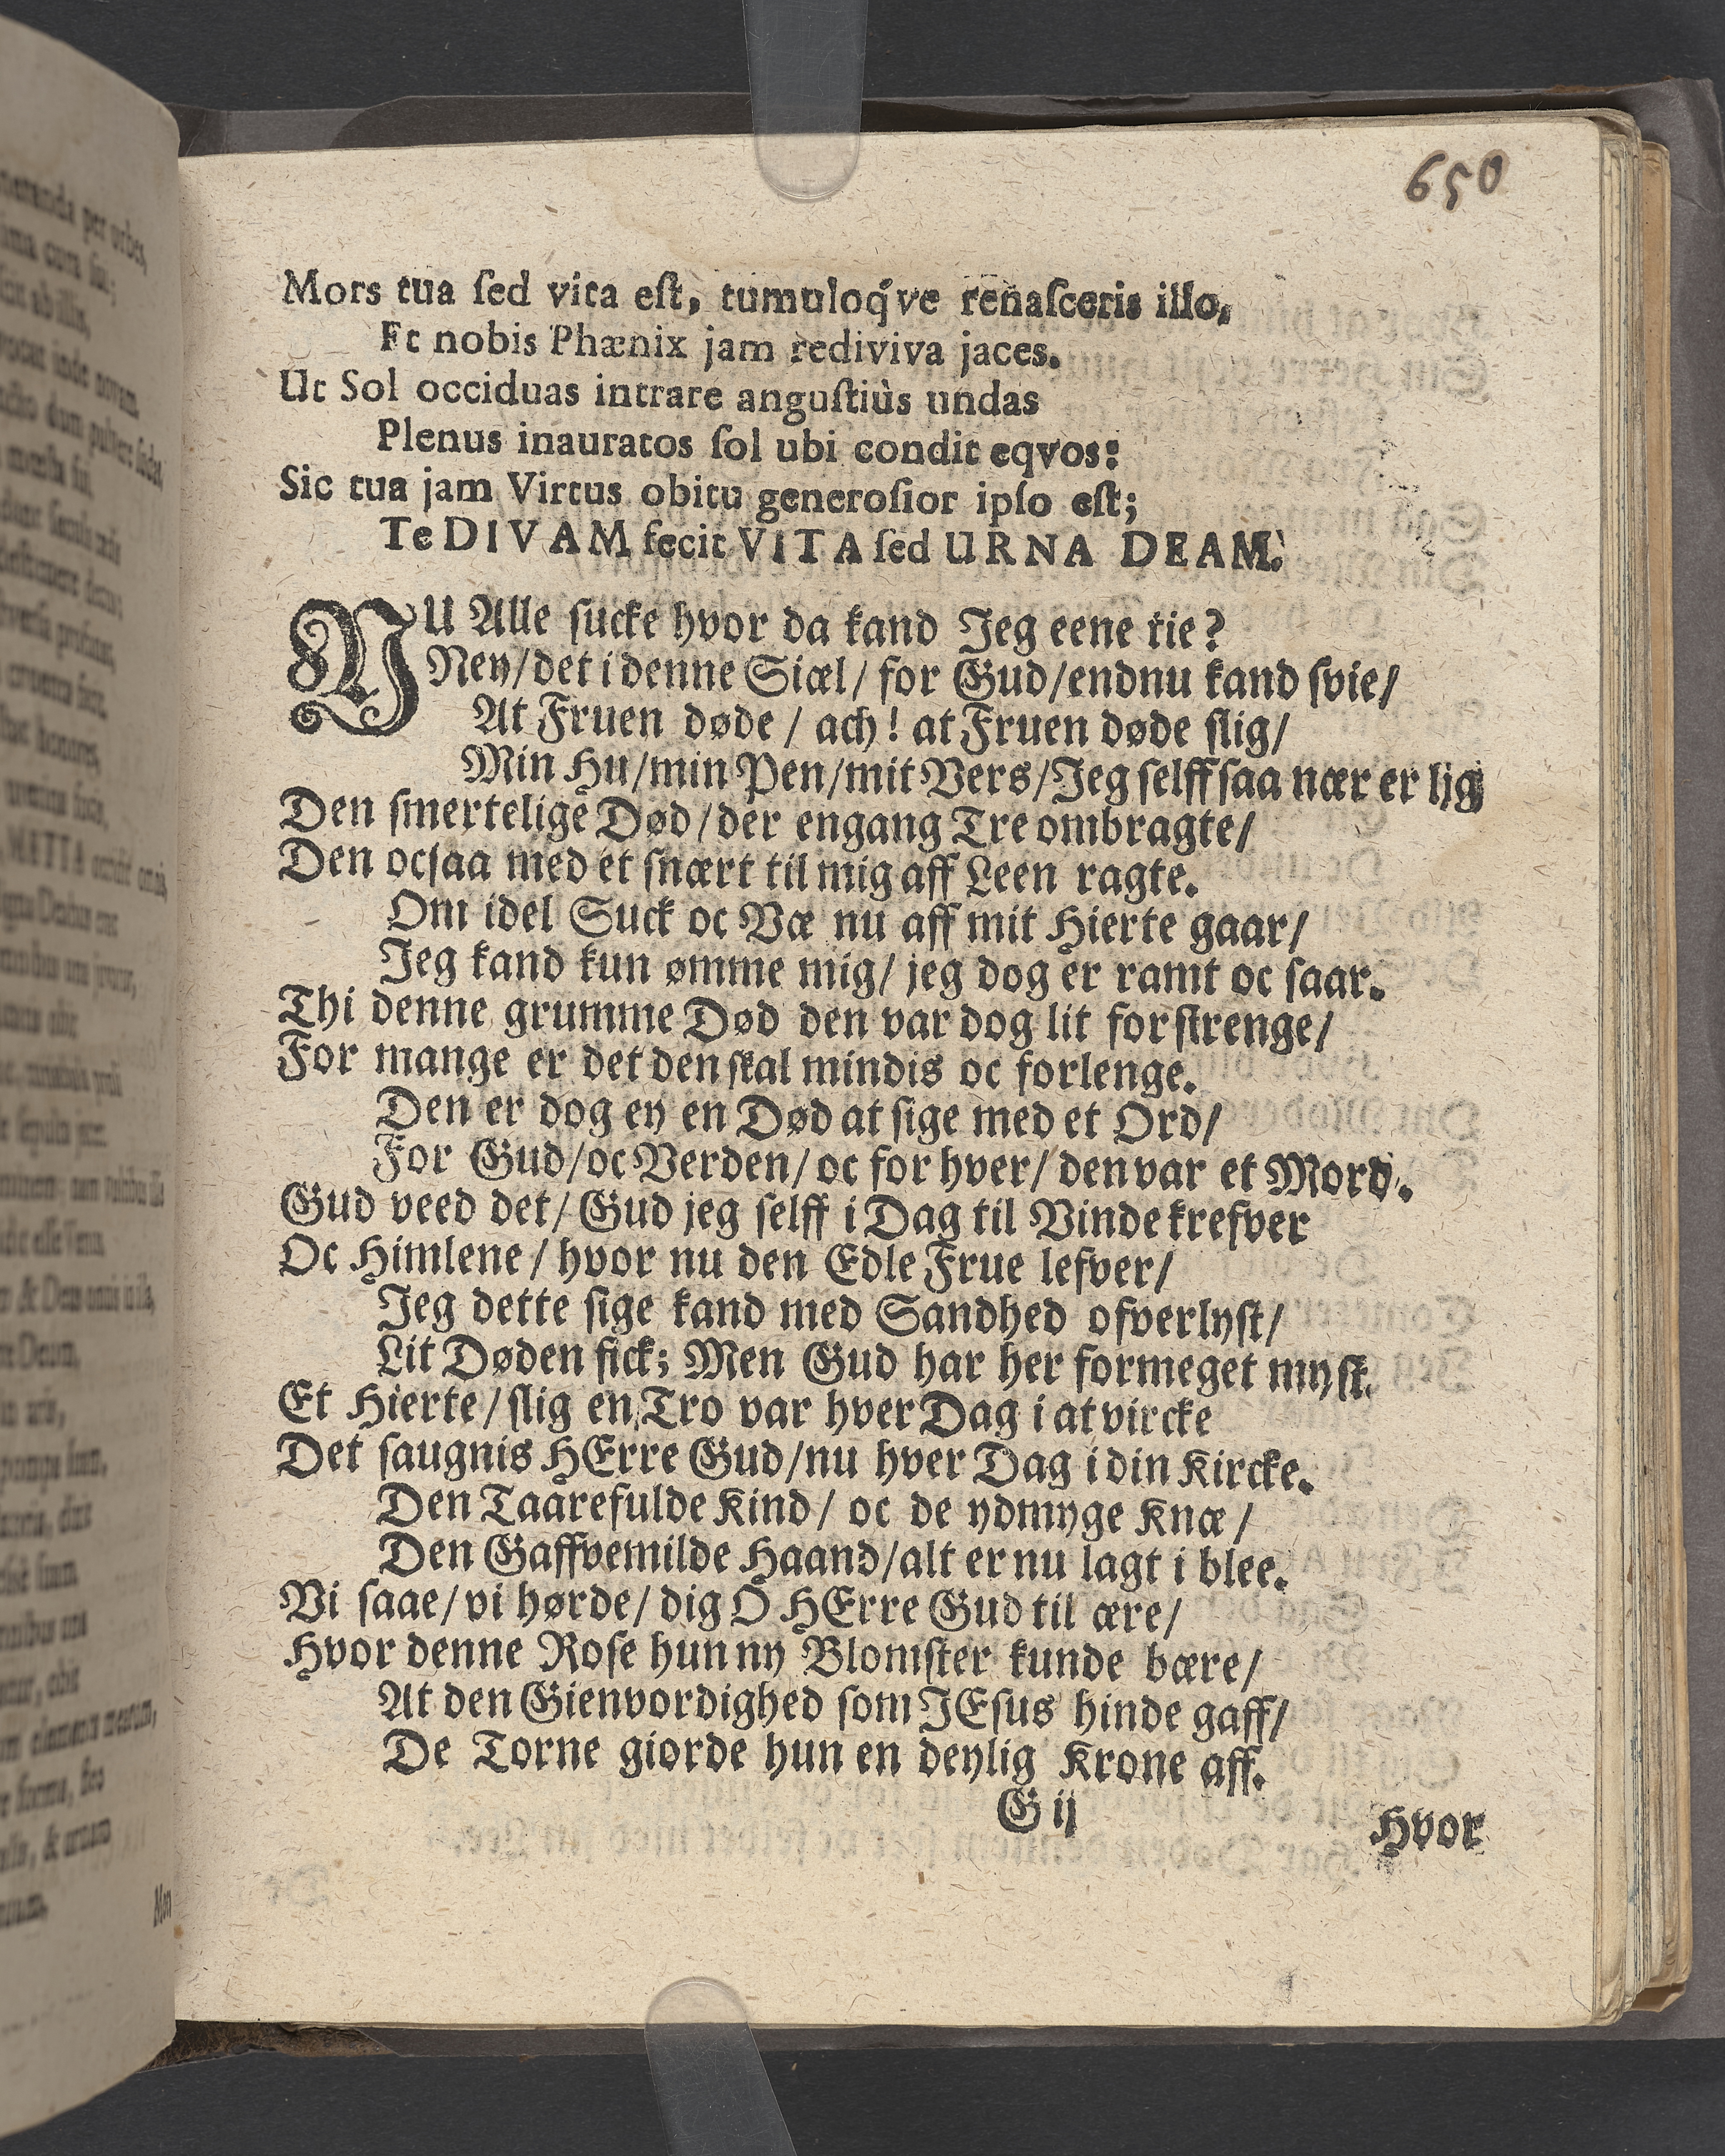 650
Mors tua ſed vita eſt, tumuloq́ve renaſceris illo,
Et nobis Phænix jam rediviva jaces.
Ut Sol occiduas intrare anguſtiùs undas
Plenus inauratos ſol ubi condit eqvos:
Sic tua jam Virtus obitu generoſior ipſo eſt;
Te DIVAM fecit VITA ſed URNA DEAM.
NU Alle ſucke hvor da kand Jeg eene tie?
Ney/det i denne Siæl/ for Gud/endnu kand ſvie/
At Fruen døde/ ach! at Fruen døde ſlig/
Min Hu/min Pen/mit Vers/Jeg ſelff ſaa nær er lig
Den ſmertelige Død/der engang Tre ombragte/
Den ocſaa med et ſnært til mig aff Leen ragte.
Om idel Suck oc Væ nu aff mit Hierte gaar/
Jeg kand kun ømme mig/ jeg dog er ramt oc ſaar.
Thi denne grumme Død den var dog lit for ſtrenge/
For mange er det den ſkal mindis oc forlenge.
Den er dog ey en Død at ſige med et Ord/
For Gud/oc Verden/ oc for hver/ den var et Mord.
Gud veed det/ Gud jeg ſelff i Dag til Vinde kreſver
Oc Himlene/ hvor nu den Edle Frue lefver/
Jeg dette ſige kand med Sandhed ofverlyſt/
Lit Døden fick; Men Gud har her formeget myſt.
Et Hierte/ ſlig en Tro var hver Dag i at vircke
Det ſaugnis HErre Gud/nu hver Dag i din Kircke.
Den Taarefulde Kind/ oc de ydmyge Knæ/
Den Gaffvemilde Haand/alt er nu lagt i blee.
Vi ſaae/ vi hørde/ dig O HErre Gud til ære/
Hvor denne Roſe hun ny Blomſter kunde bære/
At den Gienvordighed ſom JEſus hinde gaff/
De Torne giorde hun en deylig Krone aff.
G ij
Hvor